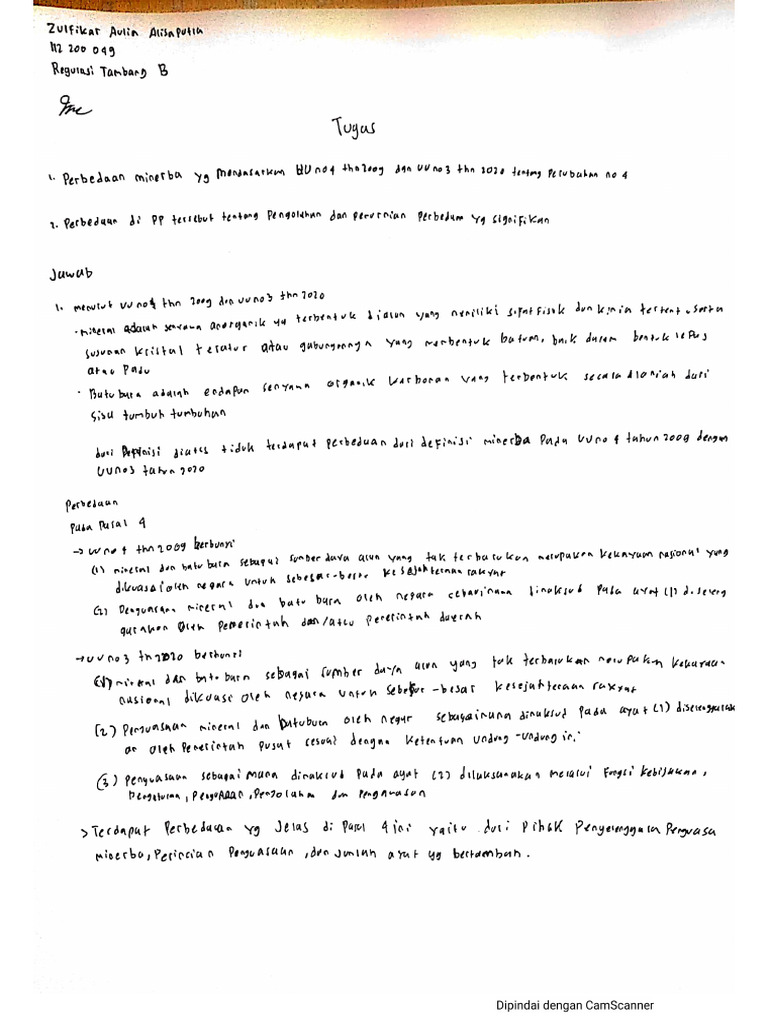 Zulfikar Aulia Alisaputra
112 200 049
Regulasi Tambang B
Tugas
1. Perbedaan minerba yg mendasarkan UU no 4 thn 2009 dan UU no 3 thn 2020 tentang Perubahan no 4
2. Perbedaan di PP tersebut tentang Pengolahan dan pemurnian perbedaan yg signifikan
Jawab
1. menurut UU no 4 thn 2009 dan UU no 3 thn 2020
• mineral adalah senyawa anorganik yg terbentuk di alam yang memiliki sifat fisik dan kimia tertentu serta
susunan kristal teratur atau gabungannya yang membentuk batuan, baik dalam bentuk lepas
atau Padu
• Batu bara adalah endapan senyawa organik karbonan yang terbentuk secara alamiah dari
sisa tumbuh tumbuhan
dari Definisi diatas tidak terdapat perbedaan dari definisi minerba pada UU no 4 tahun 2009 dengan
UU no 3 tahun 2020
Perbedaan
Pada Pasal 4
→ UU no 4 thn 2009 berbunyi
(1) mineral dan batu bara sebagai sumber daya alam yang tak terbarukan merupakan kekayaan nasional yang
dikuasai oleh negara untuk sebesar-besar kesejahteraan rakyat
(2) Penguasaan mineral dan batu bara oleh negara sebagaimana dimaksud pada ayat (1) diseleng
garakan oleh Pemerintah dan/atau pemerintah daerah
→ UU no 3 thn 2020 berbunyi
(1) mineral dan batu bara sebagai sumber daya alam yang tak terbarukan merupakan kekayaan
nasional dikuasai oleh negara untuk sebesar-besar kesejahteraan rakyat
(2) Penguasaan mineral dan batubara oleh negar sebagaimana dimaksud pada ayat (1) diselenggarak
an oleh Pemerintah Pusat sesuai dengan ketentuan Undang-Undang ini.
(3) Penguasaan sebagaimana dimaksud pada ayat (2) dilaksanakan melalui fungsi kebijakan,
Pengaturan, Pengurusan, Pengolahan dan Pengawasan
> Terdapat Perbedaan yg Jelas di Pasal 4 ini yaitu dari Pihak Penyelenggara Penguasa
minerba, Perincian Penguasaan, dan Jumlah ayat yg bertambah.
Dipindai dengan CamScanner